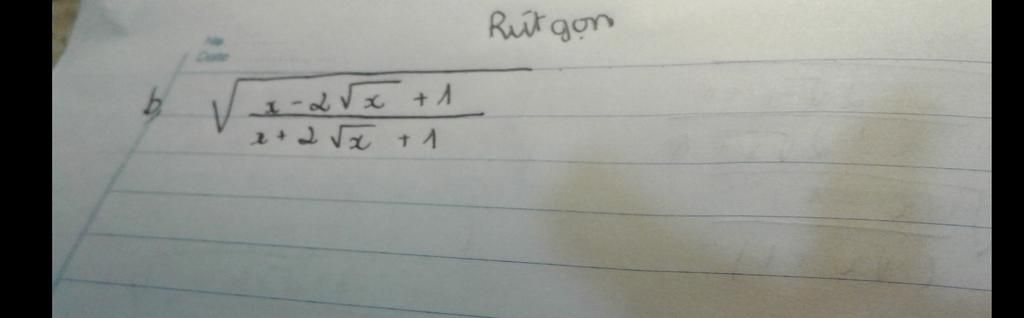 Rút gọn
No
Date
b, √((x - 2√x + 1)/(x + 2√x + 1))